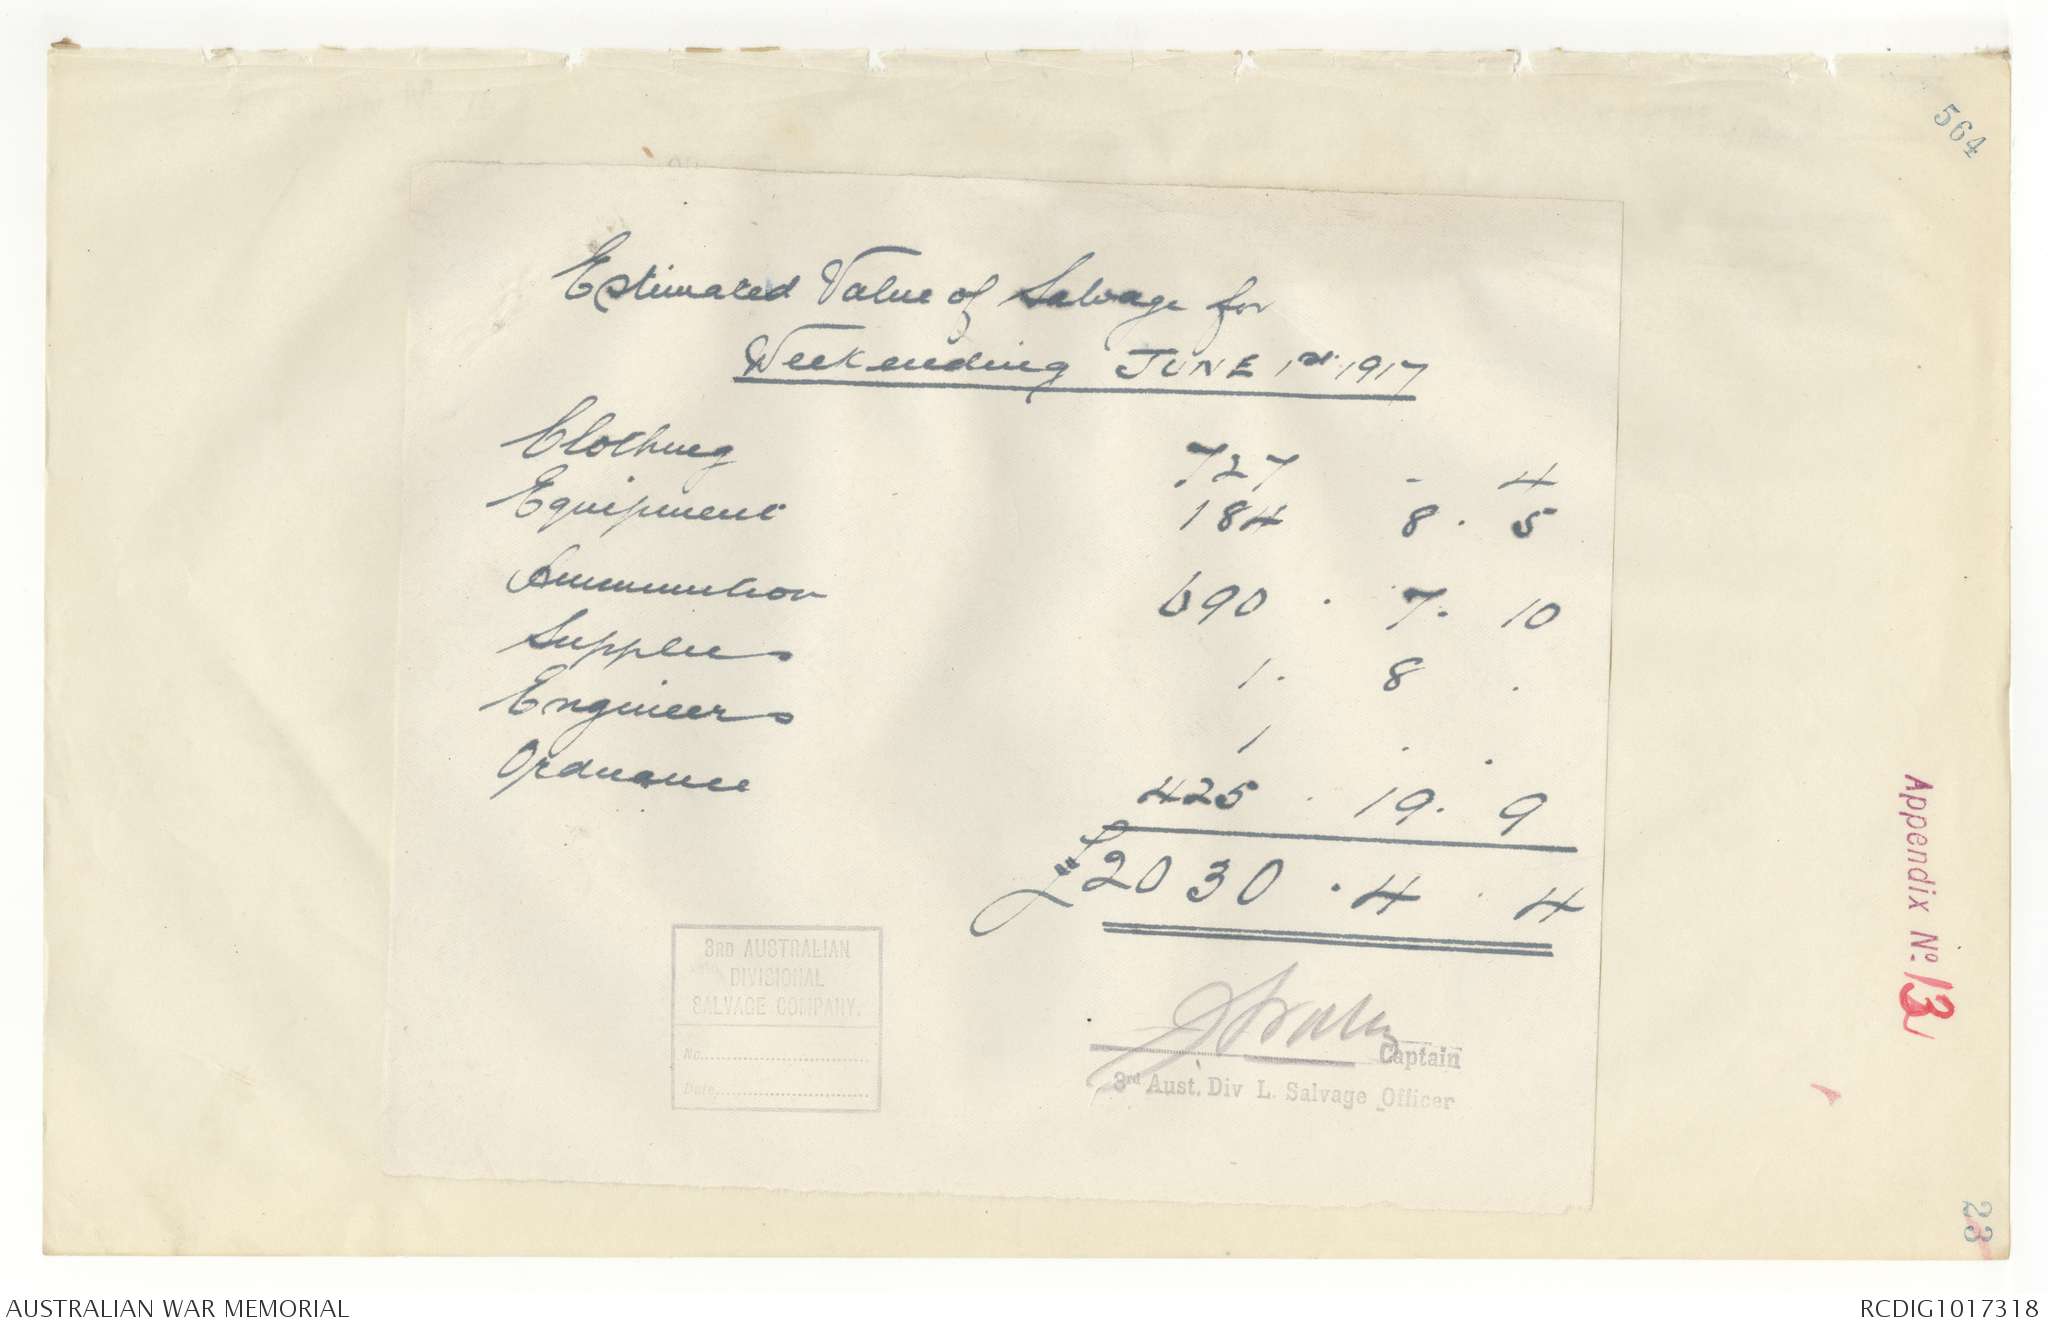 564
Estimated Value of Salvage for
Weekending JUNE 1st 1917
Clothing 727 - 4
Equipment 184 8 . 5
Ammunition 690 . 7 . 10
Supplies 1 . 8 .
Engineers 1 . .
Ordnance 425 . 19 . 9
£2030 . 4 . 4
3RD AUSTRALIAN
DIVISIONAL
SALVAGE COMPANY.
No.
Date
Captain
3rd Aust. Div L. Salvage Officer
Appendix No. 13
23
AUSTRALIAN WAR MEMORIAL
RCDIG1017318